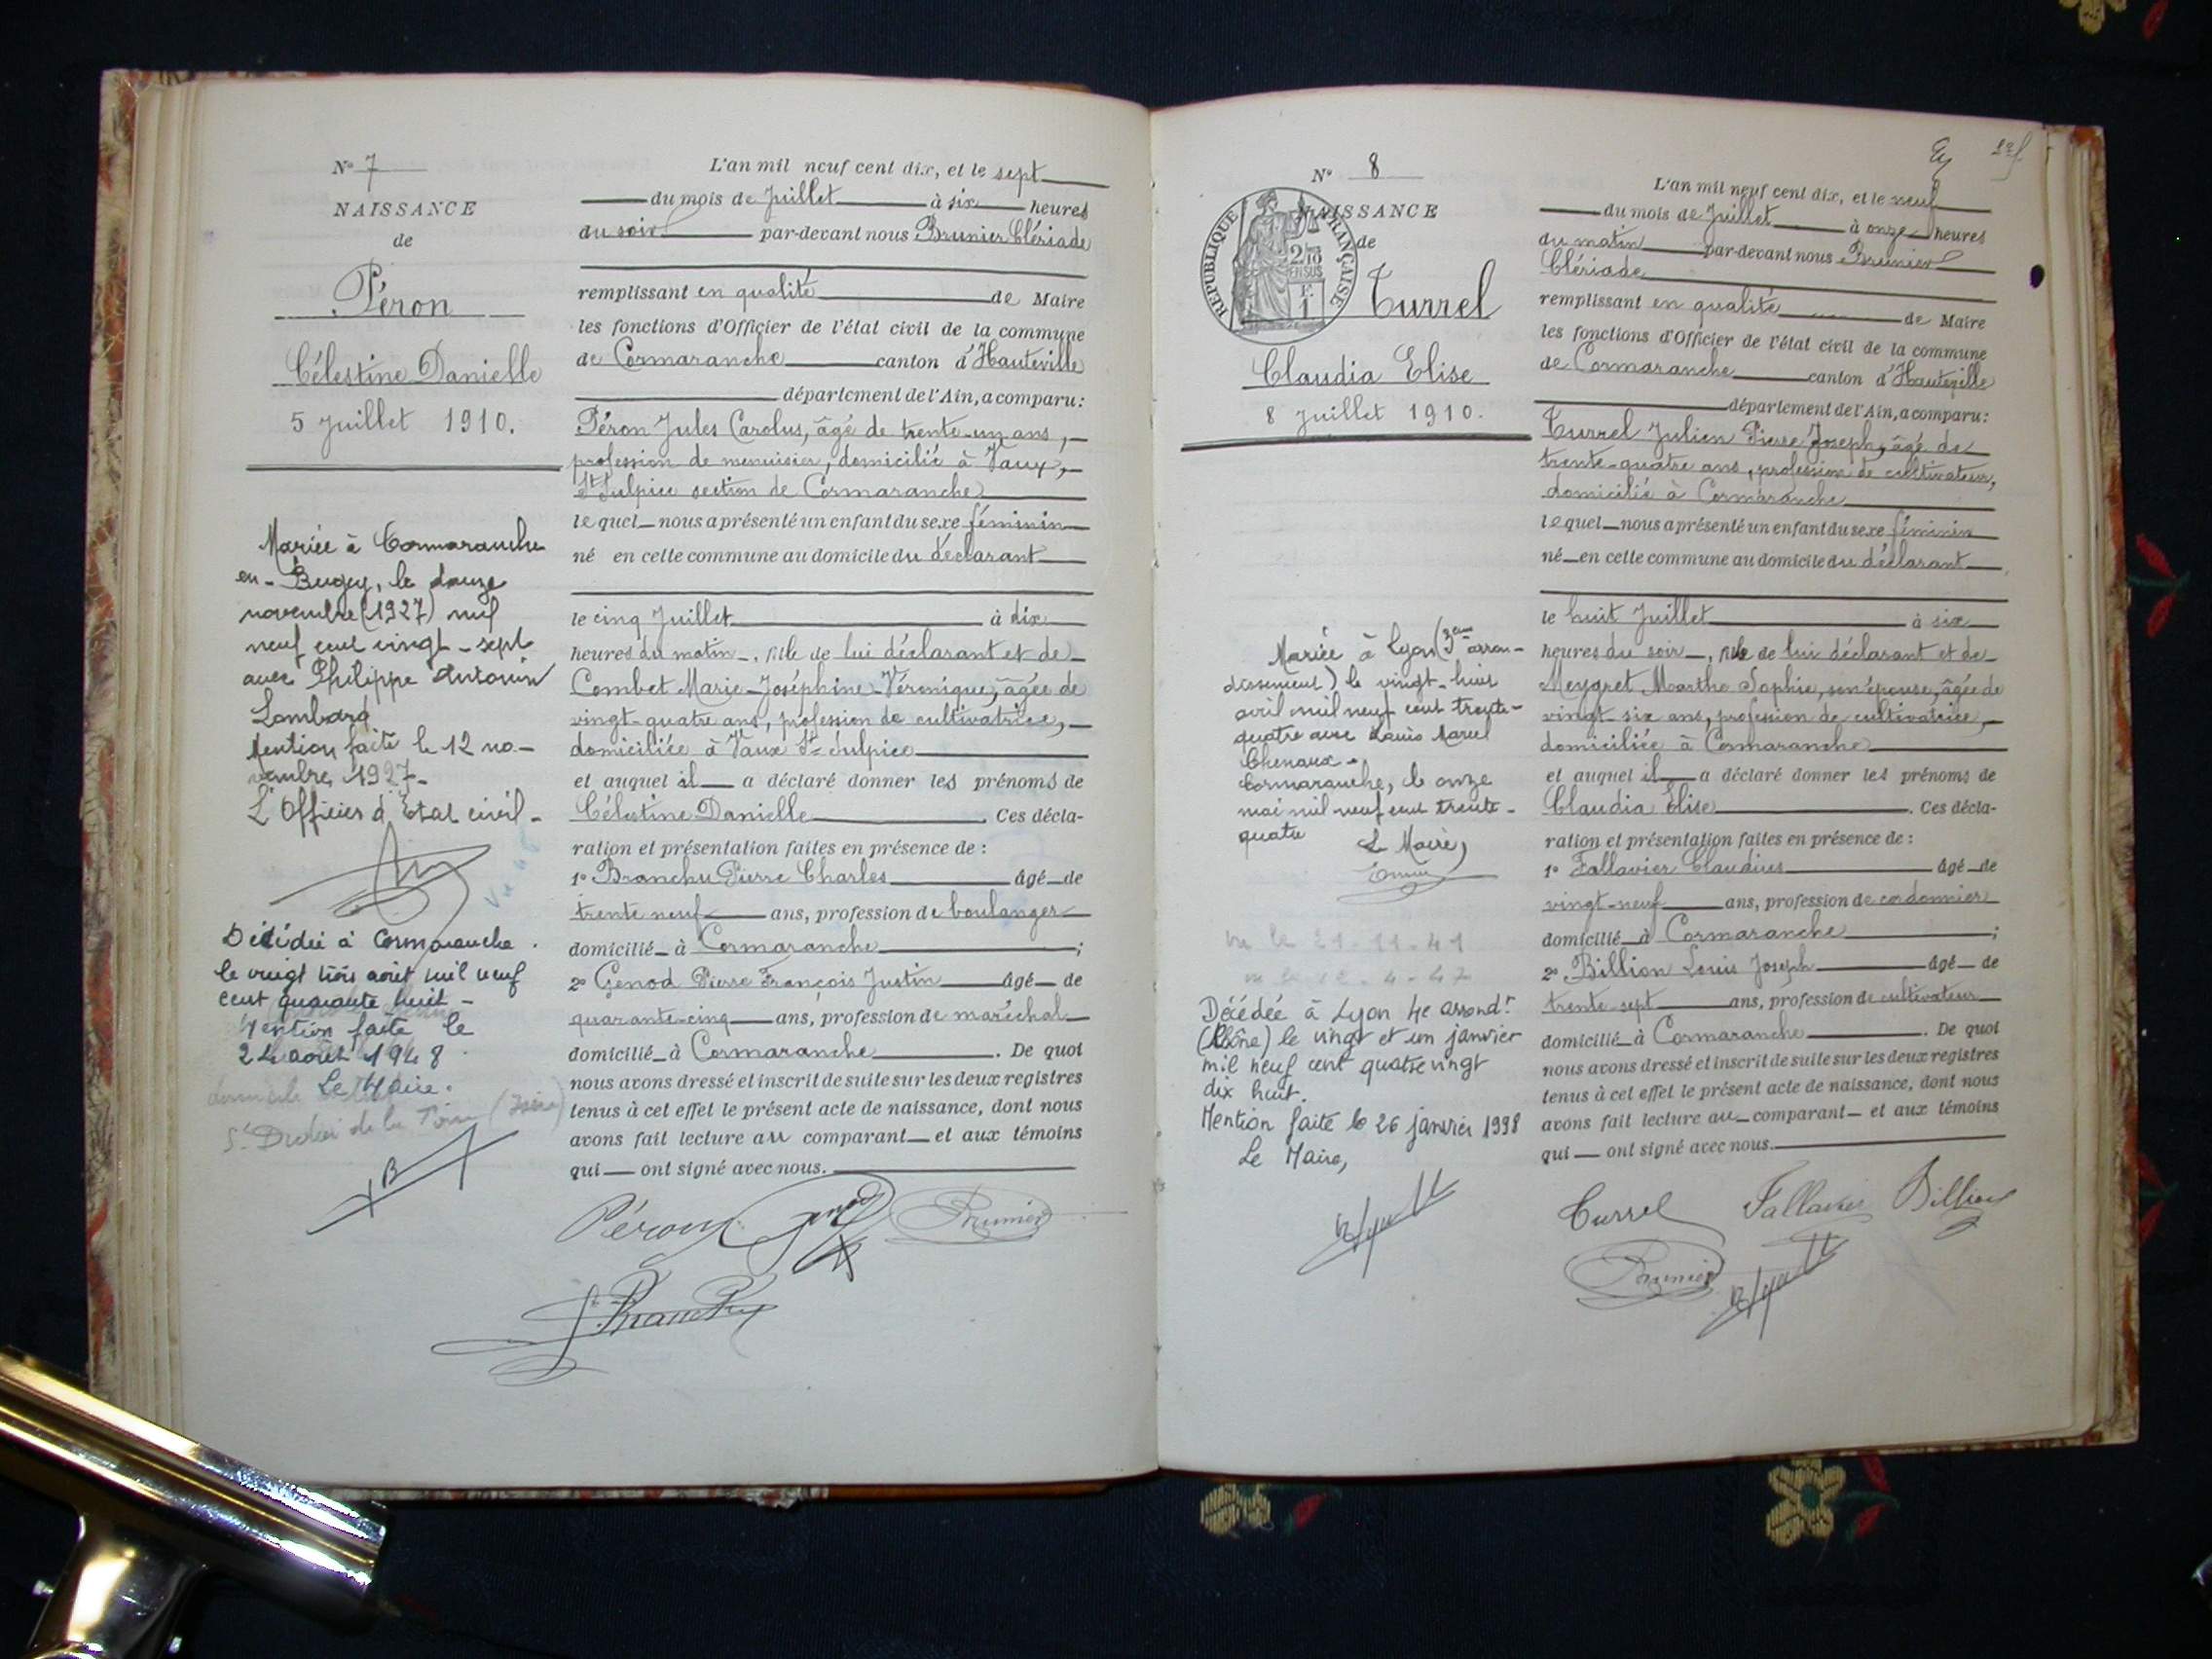 N° 7
NAISSANCE
de
Péron
Célestine Danielle
5 Juillet 1910.
Mariée à Cormaranche
en-Bugey, le douze
novembre (1927) mil
neuf cent vingt-sept
avec Philippe Antonin
Lombard
Mention faite le 12 no-
vembre 1927-
L'Officier d'Etat civil-
Décédée à Cormaranche
le vingt trois août mil neuf
cent quarante huit-
Mention faite le
24 août 1948.
Le Maire.
domicile
St Didier de la Tour (Isère)
L'an mil neuf cent dix, et le sept
du mois de Juillet à six heures
du soir par-devant nous Brunier Clériade
remplissant en qualité de Maire
les fonctions d'Officier de l'état civil de la commune
de Cormaranche canton d'Hauteville
département de l'Ain, a comparu:
Péron Jules Carolus, âgé de trente-un ans,
profession de menuisier, domicilié à Vaux,
St Sulpice section de Cormaranche
lequel nous a présenté un enfant du sexe féminin
né en cette commune au domicile du déclarant
le cinq Juillet à dix
heures du matin, fille de lui déclarant et de
Combet Marie-Joséphine-Véronique, âgée de
vingt-quatre ans, profession de cultivatrice,
domiciliée à Vaux St-Sulpice
et auquel il a déclaré donner les prénoms de
Célestine Danielle. Ces décla-
ration et présentation faites en présence de :
1° Branchu Pierre Charles âgé de
trente neuf ans, profession de boulanger
domicilié à Cormaranche ;
2° Genod Pierre François Justin âgé de
quarante-cinq ans, profession de maréchal
domicilié à Cormaranche. De quoi
nous avons dressé et inscrit de suite sur les deux registres
tenus à cet effet le présent acte de naissance, dont nous
avons fait lecture au comparant et aux témoins
qui ont signé avec nous.
Péron Genod Brunier
Branchu
N° 8
NAISSANCE
de
REPUBLIQUE FRANÇAISE
2/10
EN SUS
F.
1
Turrel
Claudia Elise
8 Juillet 1910.
Mariée à Lyon (3eme arron-
dissement) le vingt-huit
avril mil neuf cent trente-
quatre avec Louis Marcel
Chenaux.
Cormaranche, le onze
mai mil neuf cent trente-
quatre
Le Maire,
vu le 21-11-41
Décédée à Lyon 4e arrondt
(Rhône) le vingt et un janvier
mil neuf cent quatre vingt
dix huit.
Mention faite le 26 janvier 1998
Le Maire,
L'an mil neuf cent dix, et le neuf
du mois de Juillet à onze heures
du matin par-devant nous Brunier
Clériade
remplissant en qualité de Maire
les fonctions d'Officier de l'état civil de la commune
de Cormaranche canton d'Hauteville
département de l'Ain, a comparu:
Turrel Julien Pierre Joseph, âgé de
trente-quatre ans, profession de cultivateur,
domicilié à Cormaranche
lequel nous a présenté un enfant du sexe féminin
né en cette commune au domicile du déclarant
le huit Juillet à six
heures du soir, fille de lui déclarant et de
Meygret Marthe Sophie, son épouse, âgée de
vingt-six ans, profession de cultivatrice,
domiciliée à Cormaranche
et auquel il a déclaré donner les prénoms de
Claudia Elise. Ces décla-
ration et présentation faites en présence de :
1° Fallavier Claudius âgé de
vingt-neuf ans, profession de cordonnier
domicilié à Cormaranche ;
2° Billion Louis Joseph âgé de
trente-sept ans, profession de cultivateur
domicilié à Cormaranche. De quoi
nous avons dressé et inscrit de suite sur les deux registres
tenus à cet effet le présent acte de naissance, dont nous
avons fait lecture au comparant et aux témoins
qui ont signé avec nous.
Turrel Fallavier Billion
Brunier